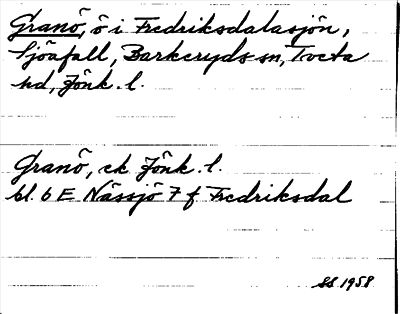 Granö, ö i Fredriksdalasjön,
Sjöafall, Barkeryds sn, Tveta
hd, Jönk. l.
Granö, ek Jönk. l.
bl. 6 E Nässjö 7 f Fredriksdal
SS 1958